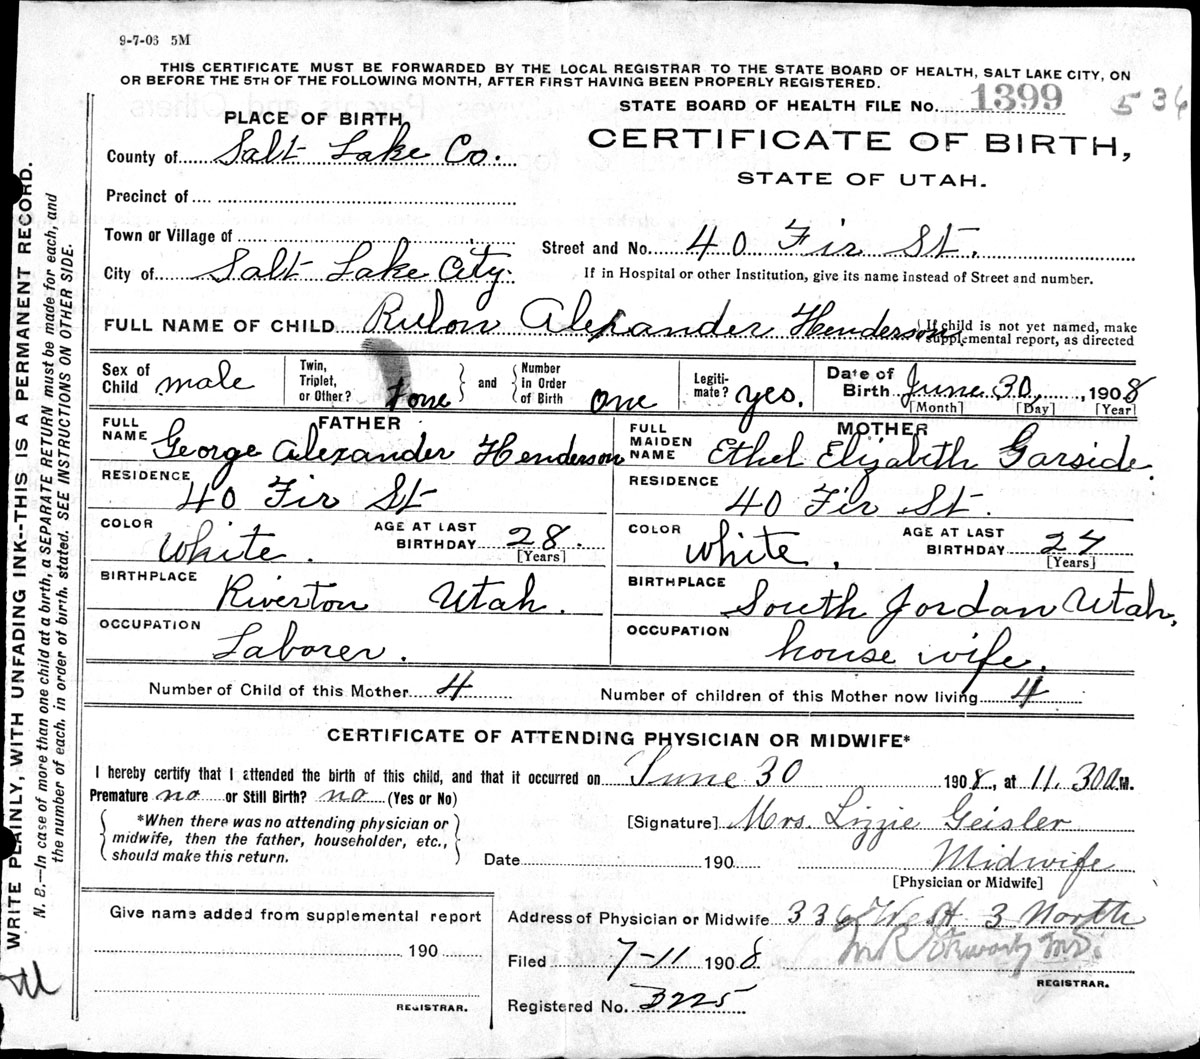 9-7-06 5M
THIS CERTIFICATE MUST BE FORWARDED BY THE LOCAL REGISTRAR TO THE STATE BOARD OF HEALTH, SALT LAKE CITY, ON
OR BEFORE THE 5TH OF THE FOLLOWING MONTH, AFTER FIRST HAVING BEEN PROPERLY REGISTERED.
STATE BOARD OF HEALTH FILE No. 1399 536
PLACE OF BIRTH
CERTIFICATE OF BIRTH,
STATE OF UTAH.
County of Salt Lake Co.
Precinct of
Town or Village of
Street and No. 40 Fir St.
City of Salt Lake City.
If in Hospital or other Institution, give its name instead of Street and number.
FULL NAME OF CHILD Rulon Alexander Henderson { If child is not yet named, make
supplemental report, as directed
Sex of Child male
Twin, Triplet, or Other? one } and { Number in Order of Birth one
Legiti-mate? yes.
Date of Birth June 30, 1908
[Month] [Day] [Year]
FATHER
FULL NAME George Alexander Henderson
RESIDENCE 40 Fir St
COLOR White.
AGE AT LAST BIRTHDAY 28.
[Years]
BIRTHPLACE Riverton Utah.
OCCUPATION Laborer.
MOTHER
FULL MAIDEN NAME Ethel Elizabeth Garside.
RESIDENCE 40 Fir St.
COLOR White,
AGE AT LAST BIRTHDAY
[Years]
BIRTHPLACE South Jordan Utah,
OCCUPATION house wife.
Number of Child of this Mother 4
Number of children of this Mother now living 4
CERTIFICATE OF ATTENDING PHYSICIAN OR MIDWIFE*
I hereby certify that I attended the birth of this child, and that it occurred on June 30 1908, at 11.30 a.M.
Premature no or Still Birth? no (Yes or No)
{ *When there was no attending physician or
midwife, then the father, householder, etc.,
should make this return. }
[Signature] Mrs. Lizzie Geisler
Date 190
Midwife
[Physician or Midwife]
Give name added from supplemental report
190
REGISTRAR.
Address of Physician or Midwife 336 West 3 North
Filed 7-11 1908
M.D.
REGISTRAR.
Registered No. 3225
WRITE PLAINLY, WITH UNFADING INK--THIS IS A PERMANENT RECORD.
N. B.—In case of more than one child at a birth, a SEPARATE RETURN must be made for each, and
the number of each. in order of birth. stated. SEE INSTRUCTIONS ON OTHER SIDE.